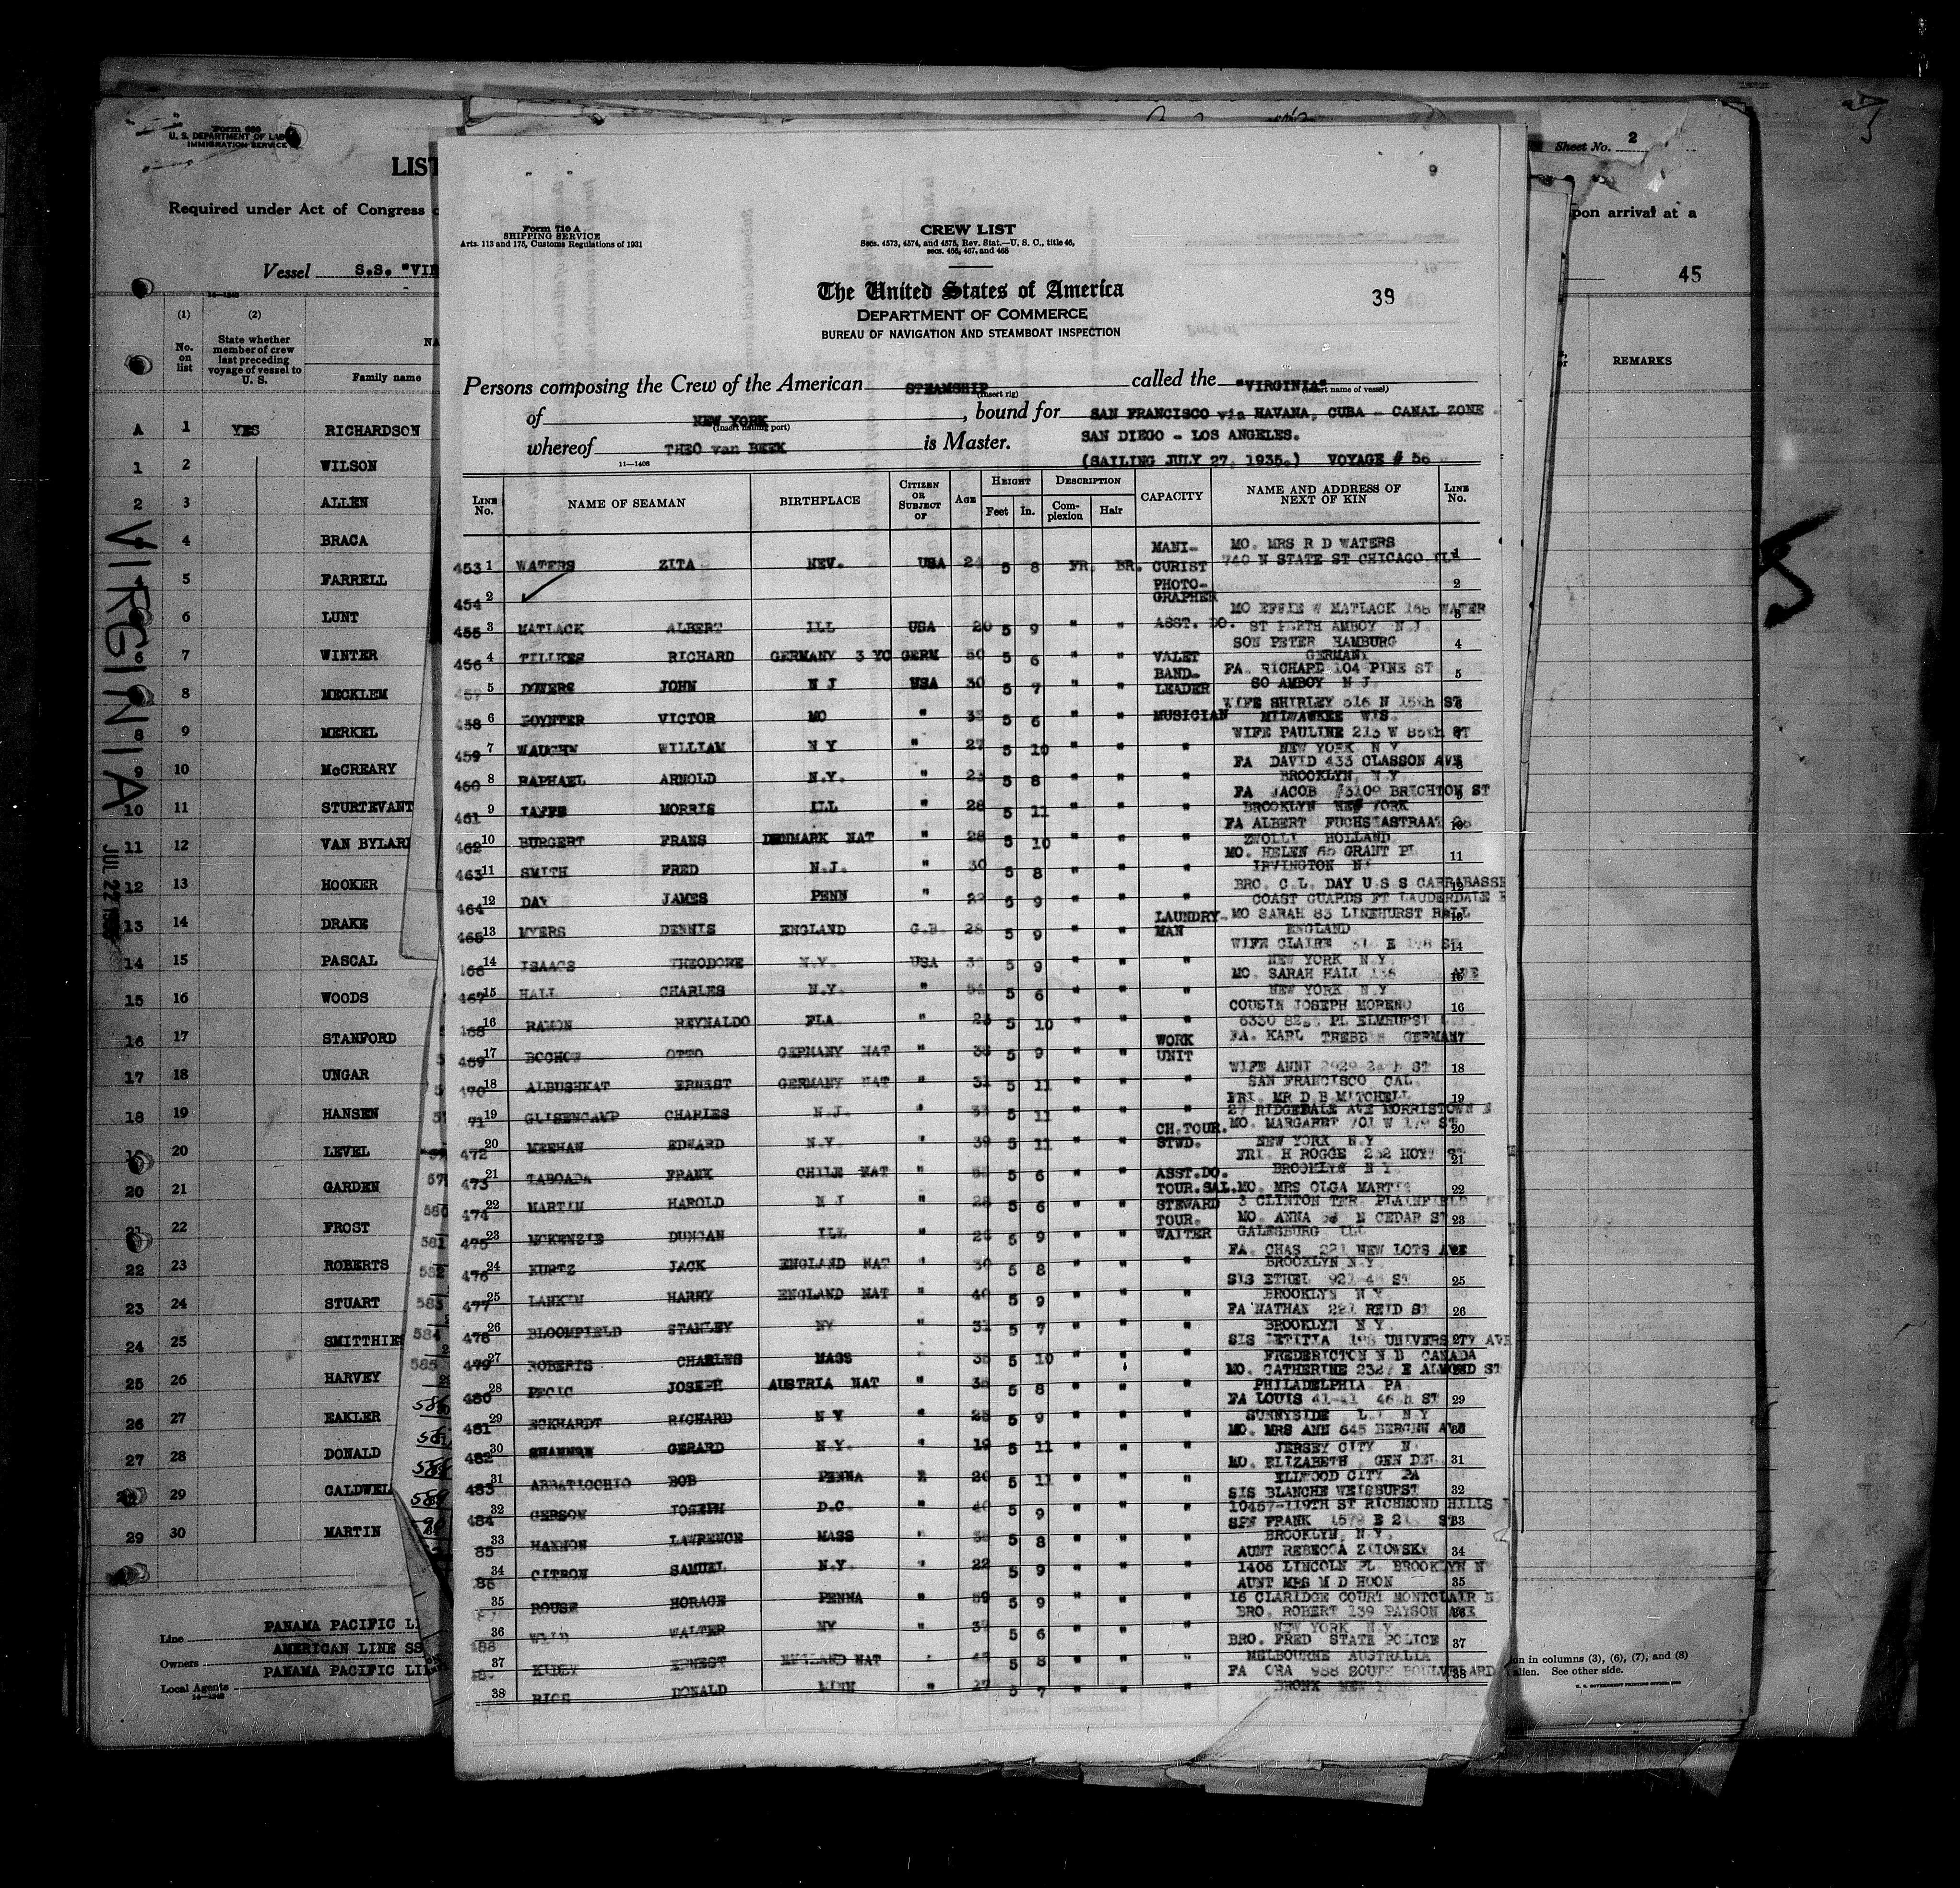 Form 680
U. S. DEPARTMENT OF LAB
IMMIGRATION SERVICE
LIST
Required under Act of Congress
Vessel S.S. "VIR
(1) (2)
No. on list
State whether member of crew last preceding voyage of vessel to U. S.
NA
Family name
A 1 YES RICHARDSON
1 2 WILSON
2 3 ALLEN
4 BRACA
5 FARRELL
6 LUNT
6 7 WINTER
8 MECKLEM
8 9 MERKEL
9 10 McCREARY
10 11 STURTEVANT
11 12 VAN BYLAR
12 13 HOOKER
13 14 DRAKE
14 15 PASCAL
15 16 WOODS
16 17 STANFORD
17 18 UNGAR
18 19 HANSEN
20 LEVEL
20 21 GARDEN
21 22 FROST
22 23 ROBERTS
23 24 STUART
24 25 SMITTHIE
25 26 HARVEY
26 27 EAKLER
27 28 DONALD
29 CALDWEL
29 30 MARTIN
Line PANAMA PACIFIC LI
Owners AMERICAN LINE SS
Local Agents PANAMA PACIFIC LI
VIRGINIA
JUL 22
580
581
582
583
584
585
586
Sheet No. 2
upon arrival at a
45
REMARKS
on in columns (3), (6), (7), and (8)
alien. See other side.
9
Form 710 A
SHIPPING SERVICE
Arts. 113 and 175, Customs Regulations of 1931
CREW LIST
Secs. 4573, 4574, and 4575, Rev. Stat.—U. S. C., title 46,
secs. 466, 467, and 468
The United States of America
39
DEPARTMENT OF COMMERCE
BUREAU OF NAVIGATION AND STEAMBOAT INSPECTION
Persons composing the Crew of the American STEAMSHIP called the "VIRGINIA"
(Insert rig) (Insert name of vessel)
of NEW YORK, bound for SAN FRANCISCO via HAVANA, CUBA - CANAL ZONE
(Insert hailing port)
SAN DIEGO - LOS ANGELES.
whereof THEO van BEEK is Master.
11—1408
(SAILING JULY 27, 1935.) VOYAGE # 56
LINE No. NAME OF SEAMAN BIRTHPLACE CITIZEN OR SUBJECT OF AGE HEIGHT Feet In. DESCRIPTION Complexion Hair CAPACITY NAME AND ADDRESS OF NEXT OF KIN LINE No.
453 1 WATERS ZITA NEV. USA 24 5 8 FR. BR. MANI-CURIST MO. MRS R D WATERS 740 N STATE ST CHICAGO ILL 1
454 2 PHOTO-GRAPHER 2
455 3 MATLACK ALBERT ILL USA 20 5 9 " " ASST. DO. MO EFFIE W MATLACK 168 WATER ST PERTH AMBOY N.J. 3
456 4 TILLKES RICHARD GERMANY 3 YC GERM 50 5 6 " " VALET SON PETER HAMBURG GERMANY 4
457 5 DOWERS JOHN N J USA 30 5 7 " " BAND-LEADER FA. RICHARD 104 PINE ST SO AMBOY N J. 5
458 6 POYNTER VICTOR MO " 35 5 6 " " MUSICIAN WIFE SHIRLEY 316 N 15th ST MILWAUKEE WIS. 6
459 7 WAUGHN WILLIAM N Y " 27 5 10 " " " WIFE PAULINE 213 W 85th ST NEW YORK N Y 7
460 8 RAPHAEL ARNOLD N.Y. " 23 5 8 " " " FA DAVID 433 CLASSON AVE BROOKLYN, N.Y. 8
461 9 JAFFE MORRIS ILL " 28 5 11 " " " FA JACOB #3109 BRIGHTON ST BROOKLYN NEW YORK 9
462 10 BURGERT FRANS DENMARK NAT " 28 5 10 " " " FA ALBERT FUCHSIASTRAAT ZWOLLI HOLLAND 10
463 11 SMITH FRED N.J. " 30 5 8 " " " MO. HELEN GRANT PL IRVINGTON NJ 11
464 12 DAY JAMES PENN " 22 5 9 " " " BRO. C.L. DAY U S S CARRABASSE COAST GUARDS FT LAUDERDALE 12
465 13 MYERS DENNIS ENGLAND G.B. 28 5 9 " " LAUNDRY-MAN MO SARAH 83 LINEHURST HALL ENGLAND 13
466 14 ISAACS THEODORE N.Y. USA 5 9 " " " WIFE CLAIRE E 178 ST NEW YORK N.Y. 14
467 15 HALL CHARLES N.Y. " 54 5 6 " " " MO. SARAH HALL AVE NEW YORK N.Y. 15
468 16 RAMON REYNALDO FLA " 23 5 10 " " " COUSIN JOSEPH MORENO 6330 82 PL ELMHURST 16
469 17 BOCHOW OTTO GERMANY NAT " 38 5 9 " " WORK UNIT FA. KARL TREBBIN GERMANY 17
470 18 ALBUSHKAT ERNEST GERMANY NAT " 31 5 11 " " " WIFE ANNI 2929 24th ST SAN FRANCISCO CAL. 18
71 19 GUISENCAMP CHARLES N.J. " 5 11 " " " FRI. MR D B MITCHELL 27 RIDGEDALE AVE MORRISTOWN N 19
472 20 MEEHAN EDWARD N.Y. " 39 5 11 " " CH.TOUR. STWD. MO. MARGARET 701 W 179 ST NEW YORK N.Y 20
473 21 TABOADA FRANK CHILE NAT " 5 6 " " ASST.DO. FRI. H ROGGE 252 HOYT ST BROOKLYN N Y. 21
474 22 MARTIN HAROLD N J " 28 5 6 " " TOUR.SAL. STEWARD MO. MRS OLGA MARTIN 3 CLINTON TER. PLAINFIELD 22
475 23 MCKENZIE DUNCAN ILL " 26 5 9 " " TOUR. WAITER MO. ANNA N CEDAR ST GALESBURG ILL 23
476 24 KURTZ JACK ENGLAND NAT " 30 5 8 " " " FA. CHAS 221 NEW LOTS AVE BROOKLYN N.Y. 24
477 25 LANKIN HARRY ENGLAND NAT " 40 5 9 " " " SIS ETHEL 921 ST BROOKLYN N Y. 25
478 26 BLOOMFIELD STANLEY NY " 31 5 7 " " " FA NATHAN 221 REID ST BROOKLYN N Y. 26
479 27 ROBERTS CHARLES MASS " 35 5 10 " " " SIS LETITIA 198 UNIVERSITY AVE FREDERICTON N B CANADA 27
480 28 PECIC JOSEPH AUSTRIA NAT " 38 5 8 " " " MO. CATHERINE 2327 E ALMOND ST PHILADELPHIA PA 28
481 29 ECKHARDT RICHARD N Y " 25 5 9 " " " FA LOUIS 41-41 46th ST SUNNYSIDE L.I N.Y 29
482 30 SHANNON GERARD N.Y. " 19 5 11 " " " MO. MRS ANN 645 BERGEN AVE JERSEY CITY N. 30
483 31 ABBATICCHIO BOB PENNA " 20 5 11 " " " MO. ELIZABETH GEN DEL. ELLWOOD CITY PA 31
484 32 GERSON JOSEPH D.C. " 40 5 9 " " " SIS BLANCHE WEISBURST 10457-119TH ST RICHMOND HILLS 32
85 33 HANNON LAWRENCE MASS " 38 5 8 " " " FRANK 1579 E 21 ST BROOKLYN, N.Y. 33
86 34 CITRON SAMUEL N.Y. " 22 5 9 " " " AUNT REBECCA ZITOWSKY 1406 LINCOLN PL. BROOKLYN NY 34
35 ROUSE HORACE PENNA " 59 5 9 " " " AUNT MRS M D HOON 16 CLARIDGE COURT MONTCLAIR 35
488 36 WILD WALTER NY " 37 5 6 " " " BRO. ROBERT 139 PAYSON AVE NEW YORK N.Y. 36
37 KUBEY ERNEST ENGLAND NAT " 5 8 " " " BRO. FRED STATE POLICE MELBOURNE AUSTRALIA 37
38 RICE DONALD MINN " 27 5 7 " " " FA ORA 988 SOUTH BOULVEARD BRONX NEW YORK 38